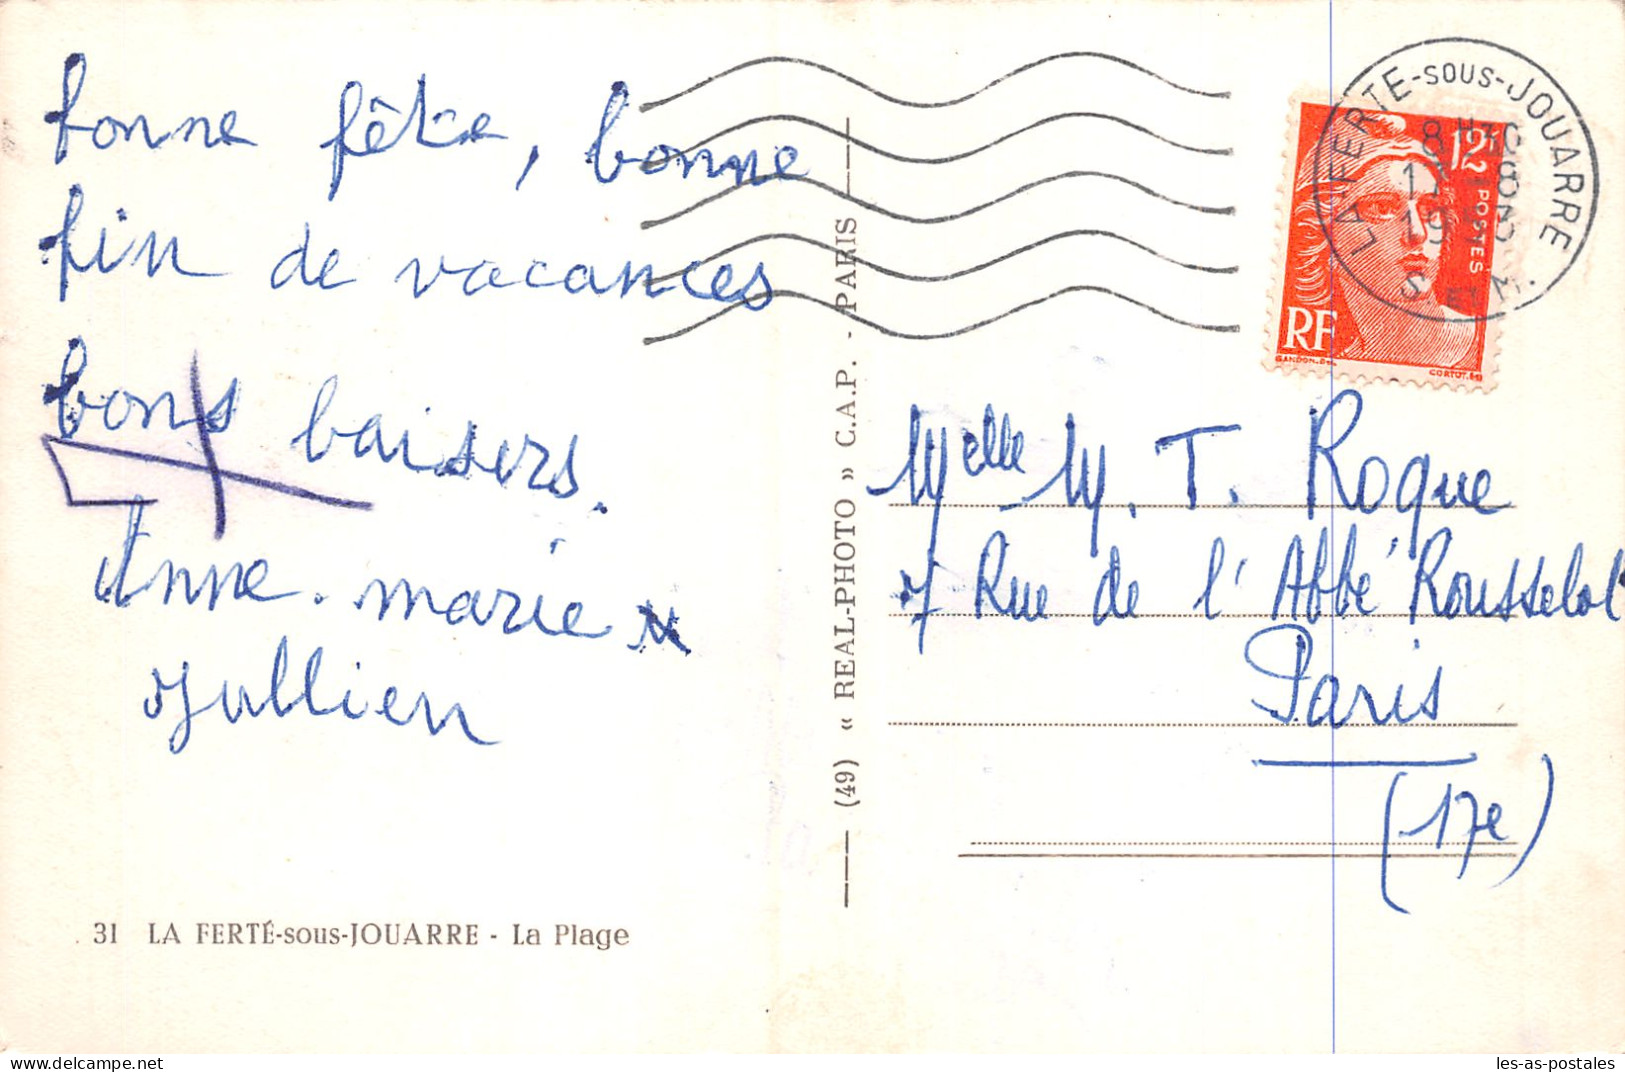 bonne fête, bonne
fin de vacances
bons baisers.
Anne-marie
Jullien
31 LA FERTÉ-sous-JOUARRE - La Plage
(49) « REAL-PHOTO » C.A.P. - PARIS
LA FERTE-SOUS-JOUARRE
S. ET M.
12F
POSTES
RF
GANDON.DEL.
CORTOT.
Melle M. T. Roque
7 Rue de l'Abbé Rousselot
Paris
(17e)
https://www.delcampe.net
les-as-postales